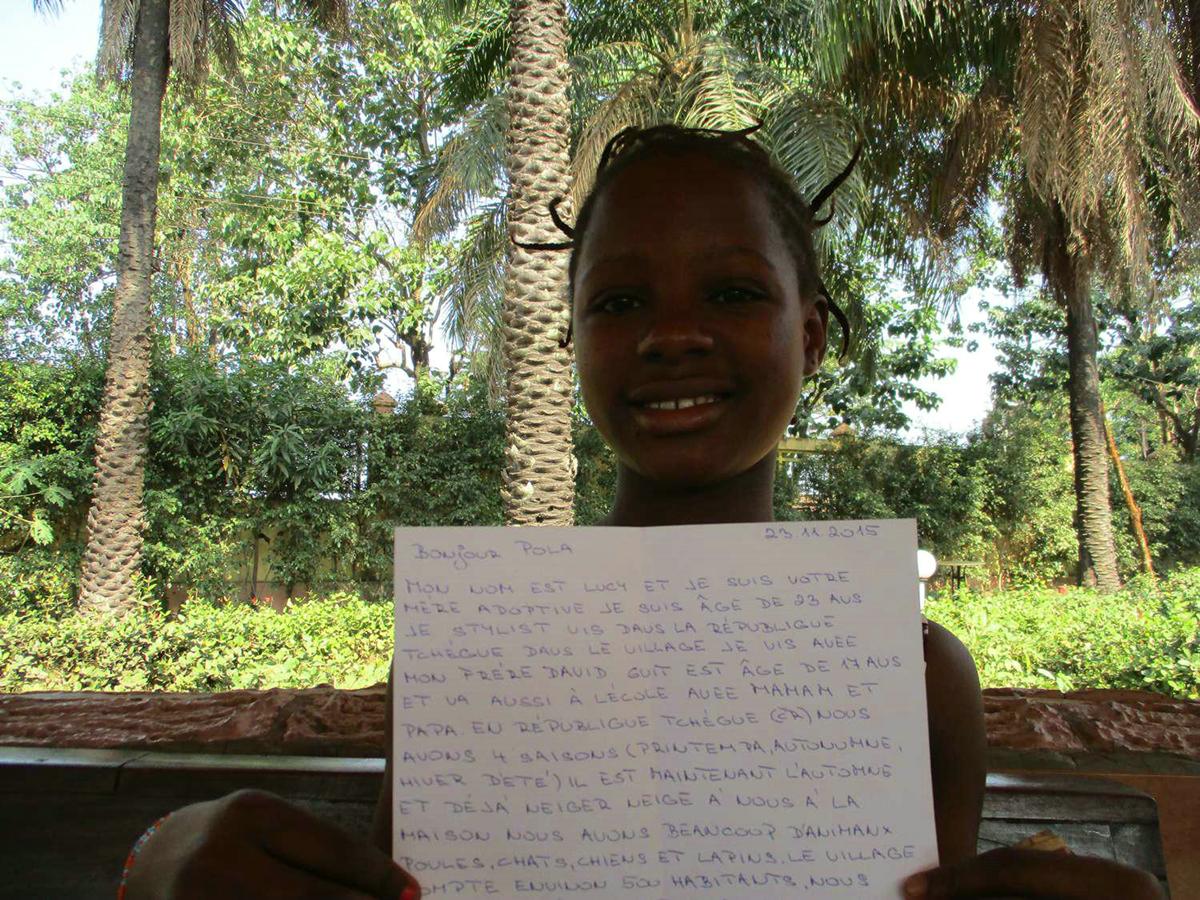 23.11.2015
BONJOUR POLA
MON NOM EST LUCY ET JE SUIS VOTRE
MÈRE ADOPTIVE JE SUIS ÂGE DE 23 AUS
JE STYLIST VIS DAUS LA RÉPUBLIGUE
TCHÉGUE DAUS LE VILLAGE JE VIS AVEE
MON FRÉRE DAVID GUIT EST ÂGE DE 17 AUS
ET VA AUSSI À LÉCOLE AVEE MAMAM ET
PAPA. EN RÉPUBLIGUE TCHÉGUE (ČR) NOUS
AVONS 4 SAISONS (PRINTEMPA, AUTONOMNE,
HIVER D'ETÉ) IL EST MAINTENANT L'AUTOMNE
ET DÉJÁ NEIGER NEIGE Á NOUS Á LA
MAISON NOUS AVONS BEANCOUP D'ANIMANX
POULES, CHATS, CHIENS ET LAPINS. LE VILLAGE
OMPTE ENVINON 500 HABITANTS, NOUS